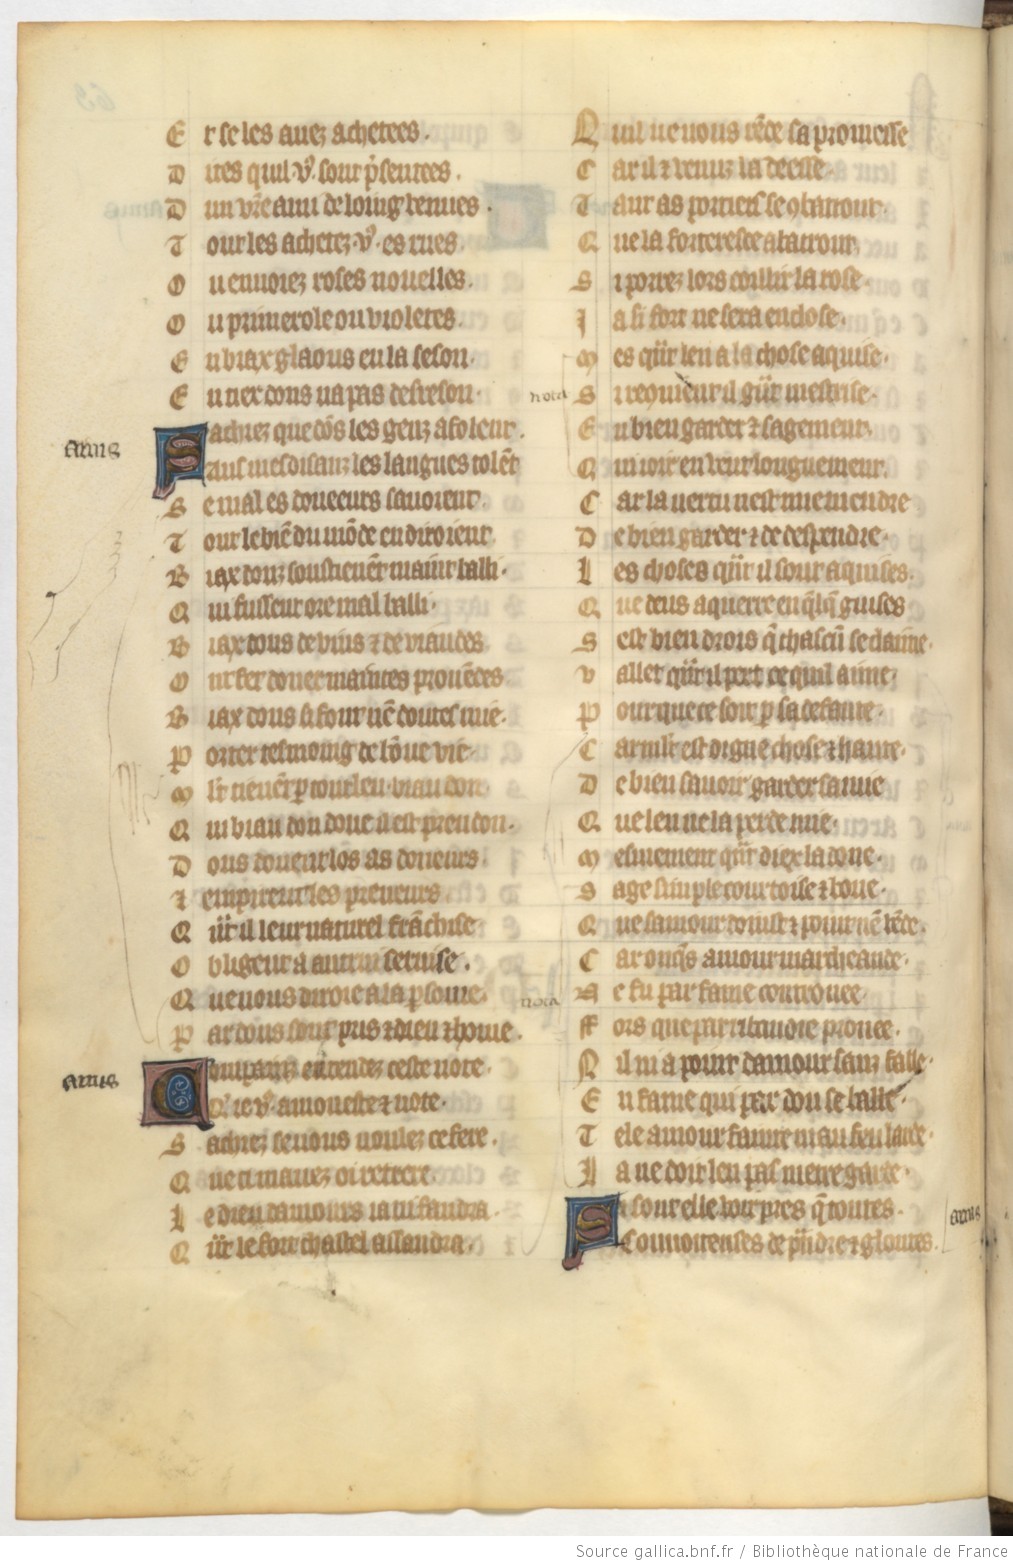 E r se les auez achetees.
D ites quil v9 sont p̃sentees.
D un vr̃e ami de loing venues.
T out les achetez v9 es rues.
O u enuoiez roses nouelles.
O u primerole ou violetes.
E n biax glaous en la seson.
E n tiex dons na pas desreson.
amis
S achiez que dõs les genz afoleut.
aus mesdisanz les langues tolẽt
S e mal es doneeurs sauoient.
T out le biẽ du mõde en diroient
B iax donz soustienẽt maint balli.
Q ui fussent ore mal balli.
B iax dons de vins z de viandes
O nt fet doner maintes prouẽdes
B iax dons si font nẽ doutes mie.
P orter tesmoing de bõne vie.
M lt tienẽt p tout leu biau don
Q ui biau don done il est preudon.
D ons donent los as doneurs
z empirent les preneurs.
Q ãt il leur naturel frãchise
O bligent a autrui seruise.
Q ue vous diroie a la p some.
P ar dons sont pris z dieu z home.
amis
C ompainz entendez ceste note
Q ie v9 amoneste z note.
S achiez se vous voulez ce fere.
Q ue ci mauez oi retrere.
L e dieu damours ia ni faudra.
Q ãt le fort chastel assaudra.
Q uil ne vous rẽde sa promesse
C ar il z venus la deesse.
T ant as portiers se 9batront.
Q ue la forteresce abatront.
S i porrez lors coillir la rose.
J a si fort ne sera enclose.
M es qãt len a la chose aquise.
nota
S i reconuient il gñt mestrise.
E n bien garder z sagement.
Q ui ioir en veut longuement.
C ar la vertu nest mie mendre
D e bien garder z de desfendre.
L es choses qãt il sont aquises.
Q ue deus aquerre en q̃lq̃ guises
S est bien drois q̃ chascũ se claime.
V allet qãt il pert ce quil aime.
P our que ce soit p sa defaute.
C ar mlt est digne chose z haute.
D e bien sauoir garder samie
Q ue len ne la perde mie.
M esmement qãt diex la done.
S age simple courtoise z bone.
Q ue samour doinst z point nẽ vẽde.
C ar onq̃s amour marcheande.
nota
N e fu par fame controuee
ff ors que par ribaudie prouee.
N il ni a point damour sanz faille.
E n fame qui par don se baille.
T ele amour fainte mau feu larde.
J a ne doit len pas metre garde.
amis
S i sont elle voir pres q̃ toutes.
Couuoitenses de pñdre z gloutes.
Source gallica.bnf.fr / Bibliothèque nationale de France